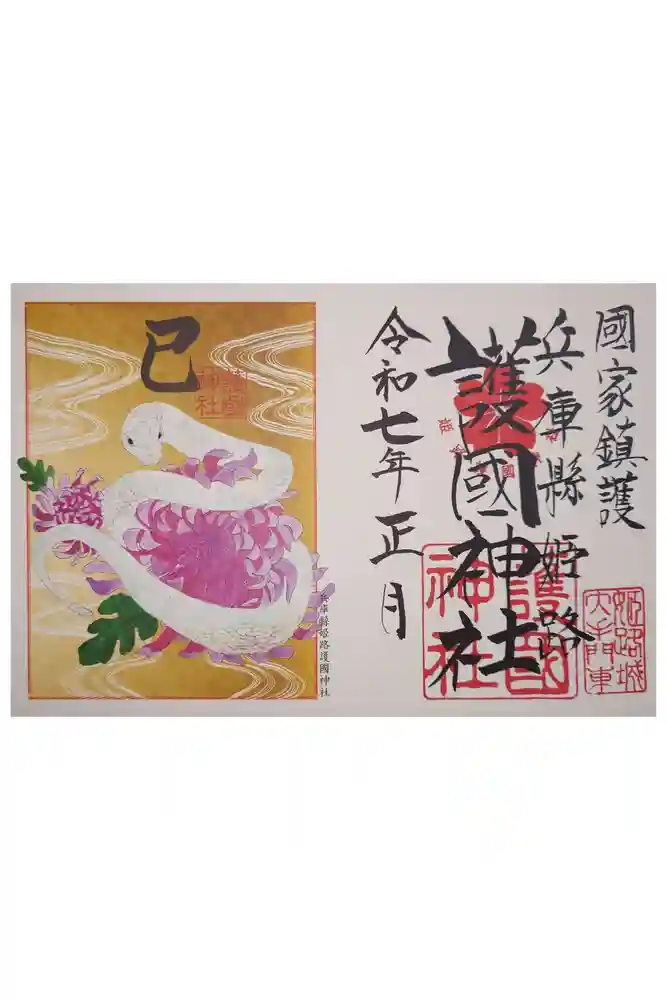 國家鎮護
姫路城
大手門東
兵庫縣姫路
護國神社
護國
神社
令和七年正月
巳
護國
神社
兵庫縣姫路護國神社